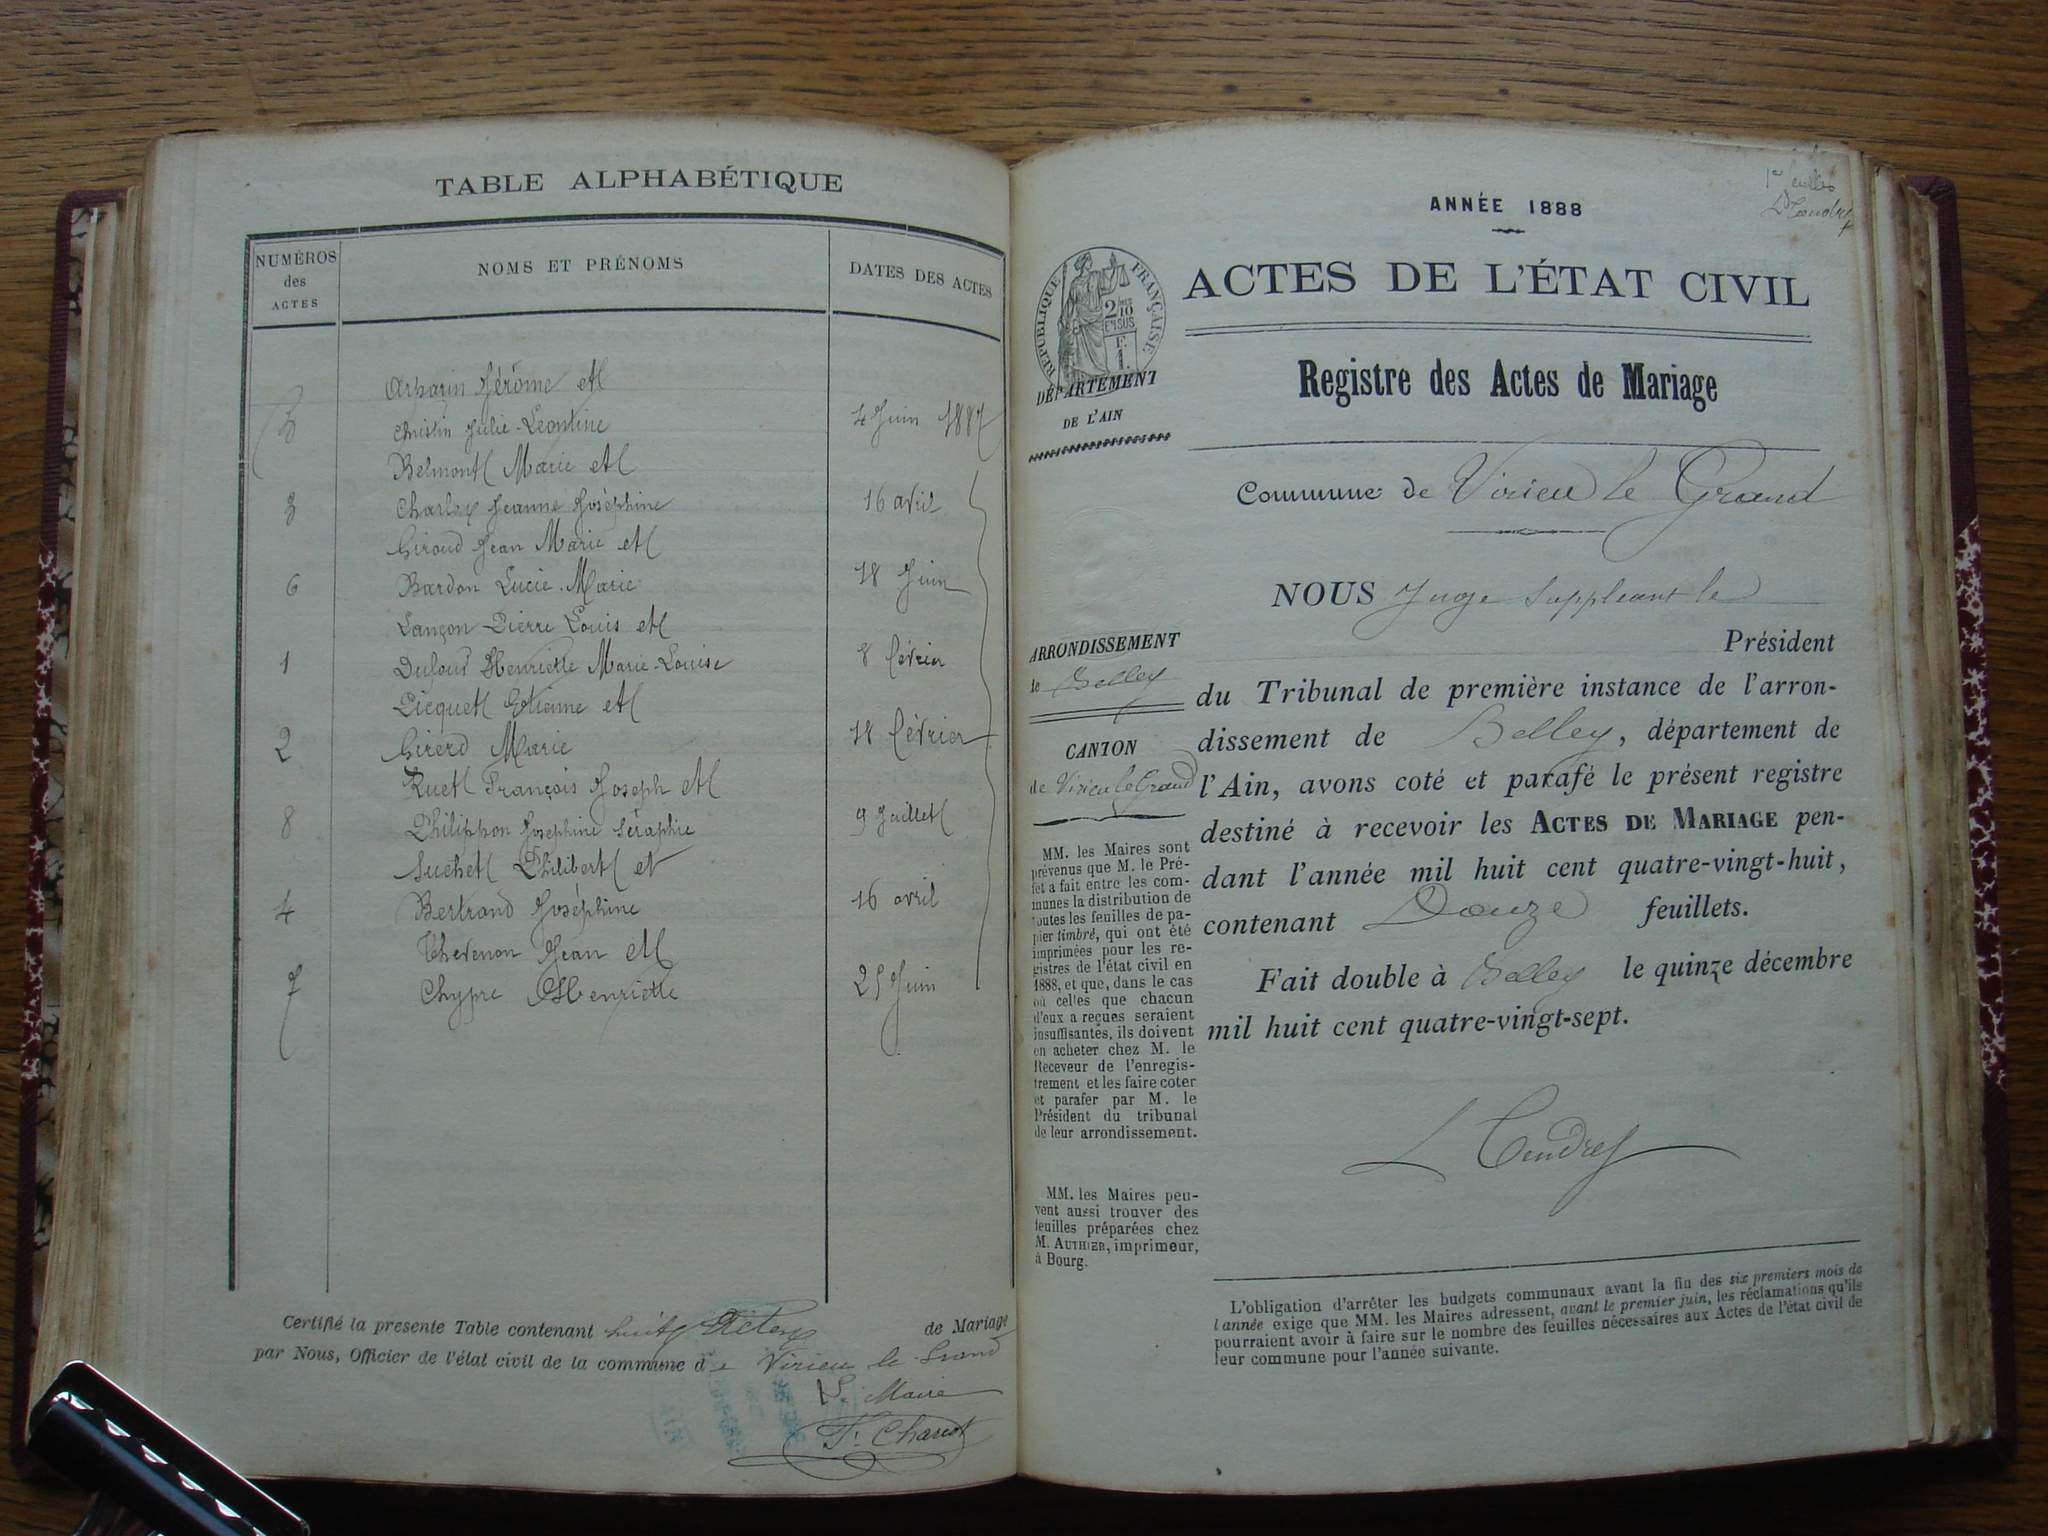 TABLE ALPHABÉTIQUE
NUMÉROS
des
ACTES
NOMS ET PRÉNOMS
DATES DES ACTES
Jérôme et
Christin Julie-Léontine
4 Juin 1887
Belmont Marie et
3 Charley Jeanne Joséphine 16 avril
Giroud Jean Marie et
6 Bardon Lucie-Marie 18 Juin
Lançon Pierre Louis et
1 Dufour Henriette Marie-Louise 8 février
Picquet Etienne et
2 Girerd Marie 18 février
Ruet François Joseph et
8 Philippon Joséphine Séraphie 9 Juillet
Suchet Philibert et
4 Bertrand Joséphine 16 avril
Thevenon Jean et
7 Chypre Henriette 25 Juin
Certifié la presente Table contenant huit Actes de Mariage
par Nous, Officier de l'état civil de la commune de Virieu le Grand
Le Maire
ANNÉE 1888
RÉPUBLIQUE FRANÇAISE
2/10
EN SUS
F.
1.
DÉPARTEMENT
DE L'AIN
ACTES DE L'ÉTAT CIVIL
Registre des Actes de Mariage
Commune de Virieu le Grand
NOUS Juge Suppléant le
Président
du Tribunal de première instance de l'arron-
dissement de Belley, département de
l'Ain, avons coté et parafé le présent registre
destiné à recevoir les ACTES DE MARIAGE pen-
dant l'année mil huit cent quatre-vingt-huit,
contenant Douze feuillets.
Fait double à Belley le quinze décembre
mil huit cent quatre-vingt-sept.
ARRONDISSEMENT
de Belley
CANTON
de Virieu le Grand
MM. les Maires sont
prévenus que M. le Pré-
fet a fait entre les com-
munes la distribution de
toutes les feuilles de pa-
pier timbré, qui ont été
imprimées pour les re-
gistres de l'état civil en
1888, et que, dans le cas
où celles que chacun
d'eux a reçues seraient
insuffisantes, ils doivent
en acheter chez M. le
Receveur de l'enregis-
trement et les faire coter
et parafer par M. le
Président du tribunal
de leur arrondissement.
MM. les Maires peu-
vent aussi trouver des
feuilles préparées chez
M. AUTHIER, imprimeur,
à Bourg.
L'obligation d'arrêter les budgets communaux avant la fin des six premiers mois de
l'année exige que MM. les Maires adressent, avant le premier juin, les réclamations qu'ils
pourraient avoir à faire sur le nombre des feuilles nécessaires aux Actes de l'état civil de
leur commune pour l'année suivante.